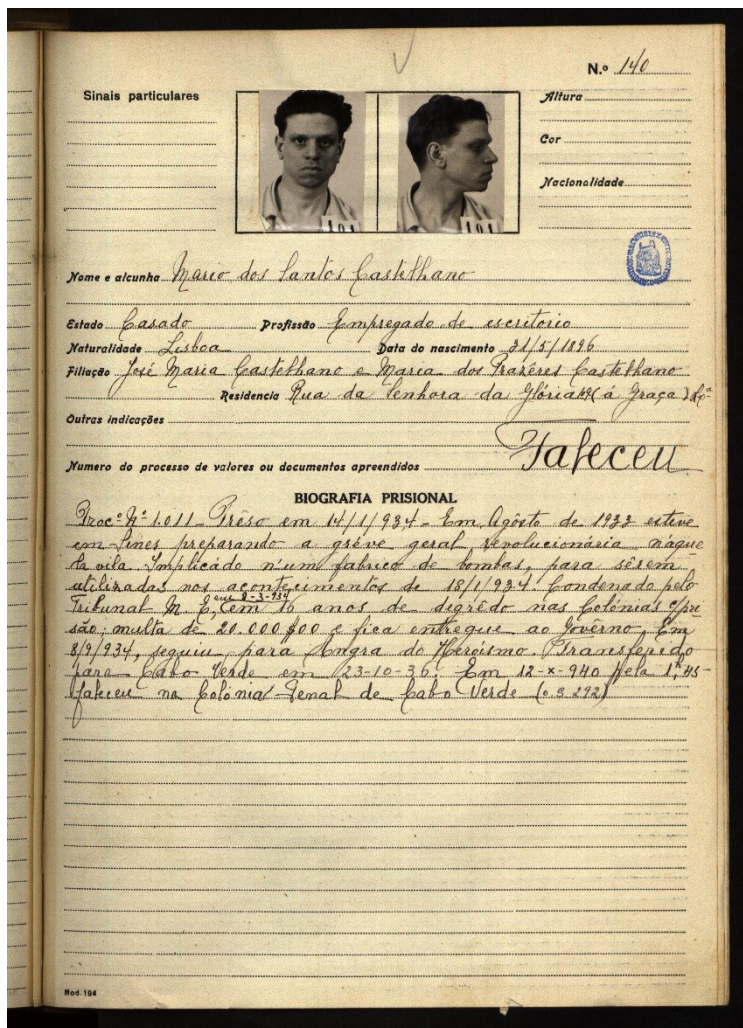 N.º 140
Sinais particulares
Altura
Cor
Nacionalidade
101
101
Nome e alcunha Mario dos Santos Castelhano
Estado Casado Profissão Empregado de escritorio
Naturalidade Lisboa Data do nascimento 31/5/1896
Filiação José Maria Castelhano e Maria dos Prazeres Castelhano
Residencia Rua da Senhora da Glória (á Graça) Lxª
Outras indicações
Faleceu
Numero do processo de valores ou documentos apreendidos
BIOGRAFIA PRISIONAL
Procº Nº 1.011 - Prêso em 14/1/934 - Em Agôsto de 1933 esteve
em Sines preparando a gréve geral revolucionária náque
la vila. Implicádo n'um fabrico de bombas, para sêrem
utilizadas nos acontecimentos de 18/1/934. Condenado pelo
Tribunal M. E, em 8-3-934 em 16 anos de digrêdo nas Colónias c/pri
são; multa de 20.000$00 e fica entregue ao Govêrno. Em
8/9/934, seguiu para Angra do Heroismo. Transferido
para Cabo Verde em 23-10-36. Em 12-X-940 pela 1,45
faleceu na Colónia Penal de Cabo Verde (o.s 292)
Mod. 194